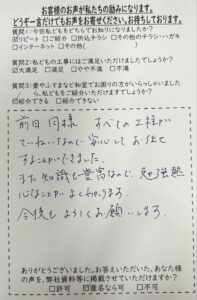 お客様のお声が私たちの励みになります。
どうぞ一言だけでもお寄せください。お待ちしております。
質問1:今回私どもをどちらでお知りになりましたか?
☑リピート □ご紹介 □折込チラシ □その他のチラシ・ハガキ
□インターネット □その他( )
質問2:私どもの工事にはご満足いただけましたでしょうか?
☑大満足 □満足 □やや不満 □不満
質問3:畳やふすまなど和室でお困りの方がいらっしゃいましたら、私どもをご紹介いただけますでしょうか?
☑紹介できる □紹介できない
前回同様 すべての工程が
ていねいなので安心してお任せ
することができました。
また知識も豊富なので、勉強熱
心なことがよくわかります。
今後もよろしくお願いします。
ありがとうございました。お答えいただいた、あなた様
の声を、弊社資料等に掲載させていただけますか?
□許可 ☑匿名なら可 □不可